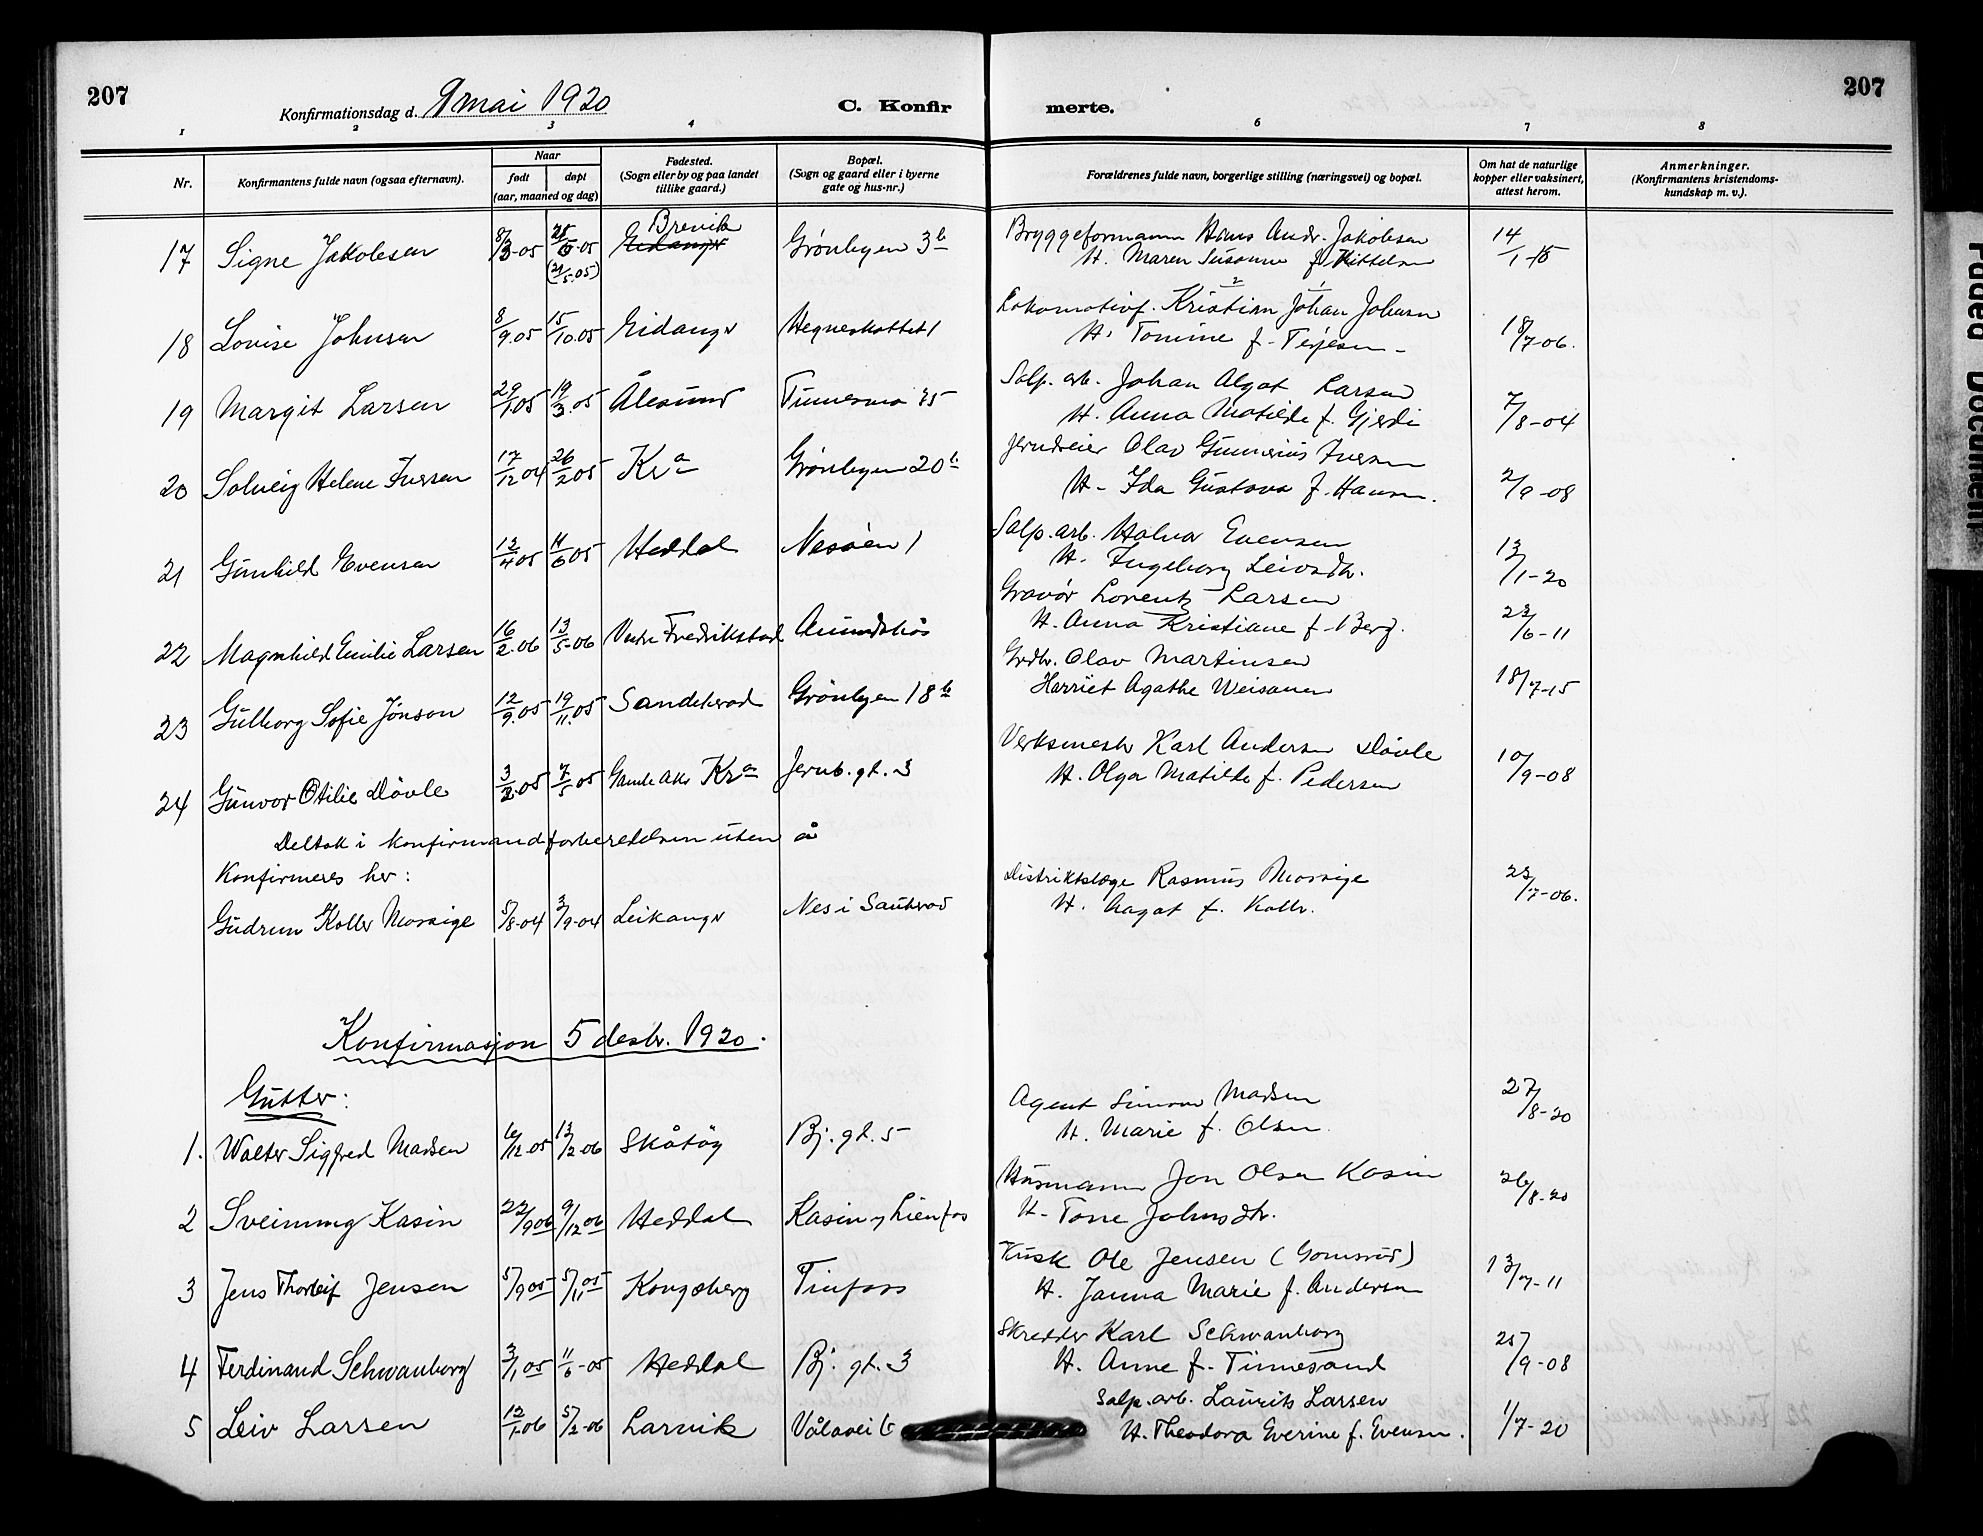 207
Konfirmationsdag d. 9 mai 1920
C. Konfirmerte.
207
1 2 3 4 5 6 7 8
Nr.
Konfirmantens fulde navn (ogsaa efternavn).
Naar født døpt (aar, maaned og dag)
Fødested. (Sogn eller by og paa landet tillike gaard.)
Bopæl. (Sogn og gaard eller i byerne gate og hus-nr.)
Forældrenes fulde navn, borgerlige stilling (næringsvei) og bopæl.
Om hat de naturlige kopper eller vaksinert, attest herom.
Anmerkninger. (Konfirmantens kristendoms-kundskap m. v.).
17 Signe Jakobsen 8/3-05 (21/5.05) Brevik Eidanger Grønbyen 3b Bryggeformann Hans Andr. Jakobsen 14/1-15
H. Maren Susanne f. Kittelsen
18 Lovise Johnsen 8/9.05 15/10.05 Eidanger Hegneskottet 1 Lokomotivf. Kristian Johan Johnsen 18/7-06.
H. Tomine f. Terjesen
19 Margit Larsen 29/1.05 19/3.05 Ålesund Tinnesmo 25 Salp. arb. Johan Algot Larsen 7/8-04
H. Anna Matilde f. Gjerdi
20 Solveig Helene Iversen 17/12 04 26/2 05 Kra Grønbyen 20b Jerndreier Olav Gunnerius Iversen 2/9-08
H. Ida Gustava f. Hansen.
21 Gunhild Evensen 12/4 05 11/6 05 Heddal Nesøen 1 Salp. arb. Halvor Evensen 13/1-20
H. Ingeborg Leivsdtr.
22 Magnhild Emilie Larsen 16/2.06 13/5-06 Vestre Fredrikstad Amundshus Gravør Lorentz Larsen 23/6-11
H. Anna Kristiane f. Berg.
23 Gulborg Sofie Jønson 12/9.05 19/11.05 Sandeherad Grønbyen 18b Grdbr. Olav Martinsen 18/7-15
Harriet Agathe
24 Gunvor Otilie Døvle 3/2.05 7/5 05 Gamle Aker Kra Jernb. gt. 3 Verksmestr Karl Andersen Døvle 10/9-08
H. Olga Matilde f. Pedersen
Deltok i konfirmandforberedelsen uten å
konfirmeres her:
Gudrun Koller Morsige 5/8-04 3/9-04 Leikanger Nes i Sauherad Distriktslæge Rasmus Morsige 23/7-06.
H. Aagot f. Koller.
Konfirmasjon 5 desbr. 1920.
Gutter:
1. Walter Sigfred Madsen 6/12.05 13/2-06 Skåtøy Bj. gt. 5 Agent Simon Madsen 27/8-20
H. Marie f. Olsen
2 Sveinung Kasin 22/9 06 9/12 06 Heddal Kasin Lienfos Husmann Jon Olsen Kasin 26/8-20
H. Tone Johnsdtr.
3 Jens Thorleif Jensen 5/9 05 5/11 05 Kongsberg Tinfoss Kusk Ole Jensen (Gomsrud) 13/7-11
H. Janna Marie f. Andersen
4 Ferdinand Schwanborg 3/1 05 11/6-05 Heddal Bj. gt. 3 Skredder Karl Schwanborg 25/9-08
H. Anne f. Tinnesand
5 Leiv Larsen 12/1-06 5/2-06 Larvik Vålavei 6 Salp. arb. Laurits Larsen 1/7-20
H. Theodora Everine f. Evensen.